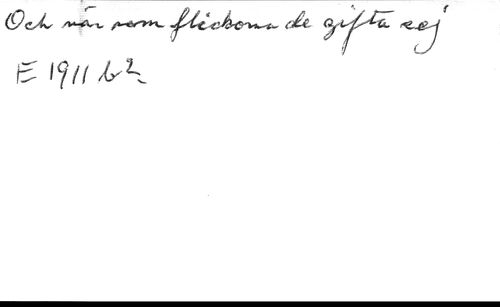 Och när som flickorna de gifta sej
E 1911 b 2